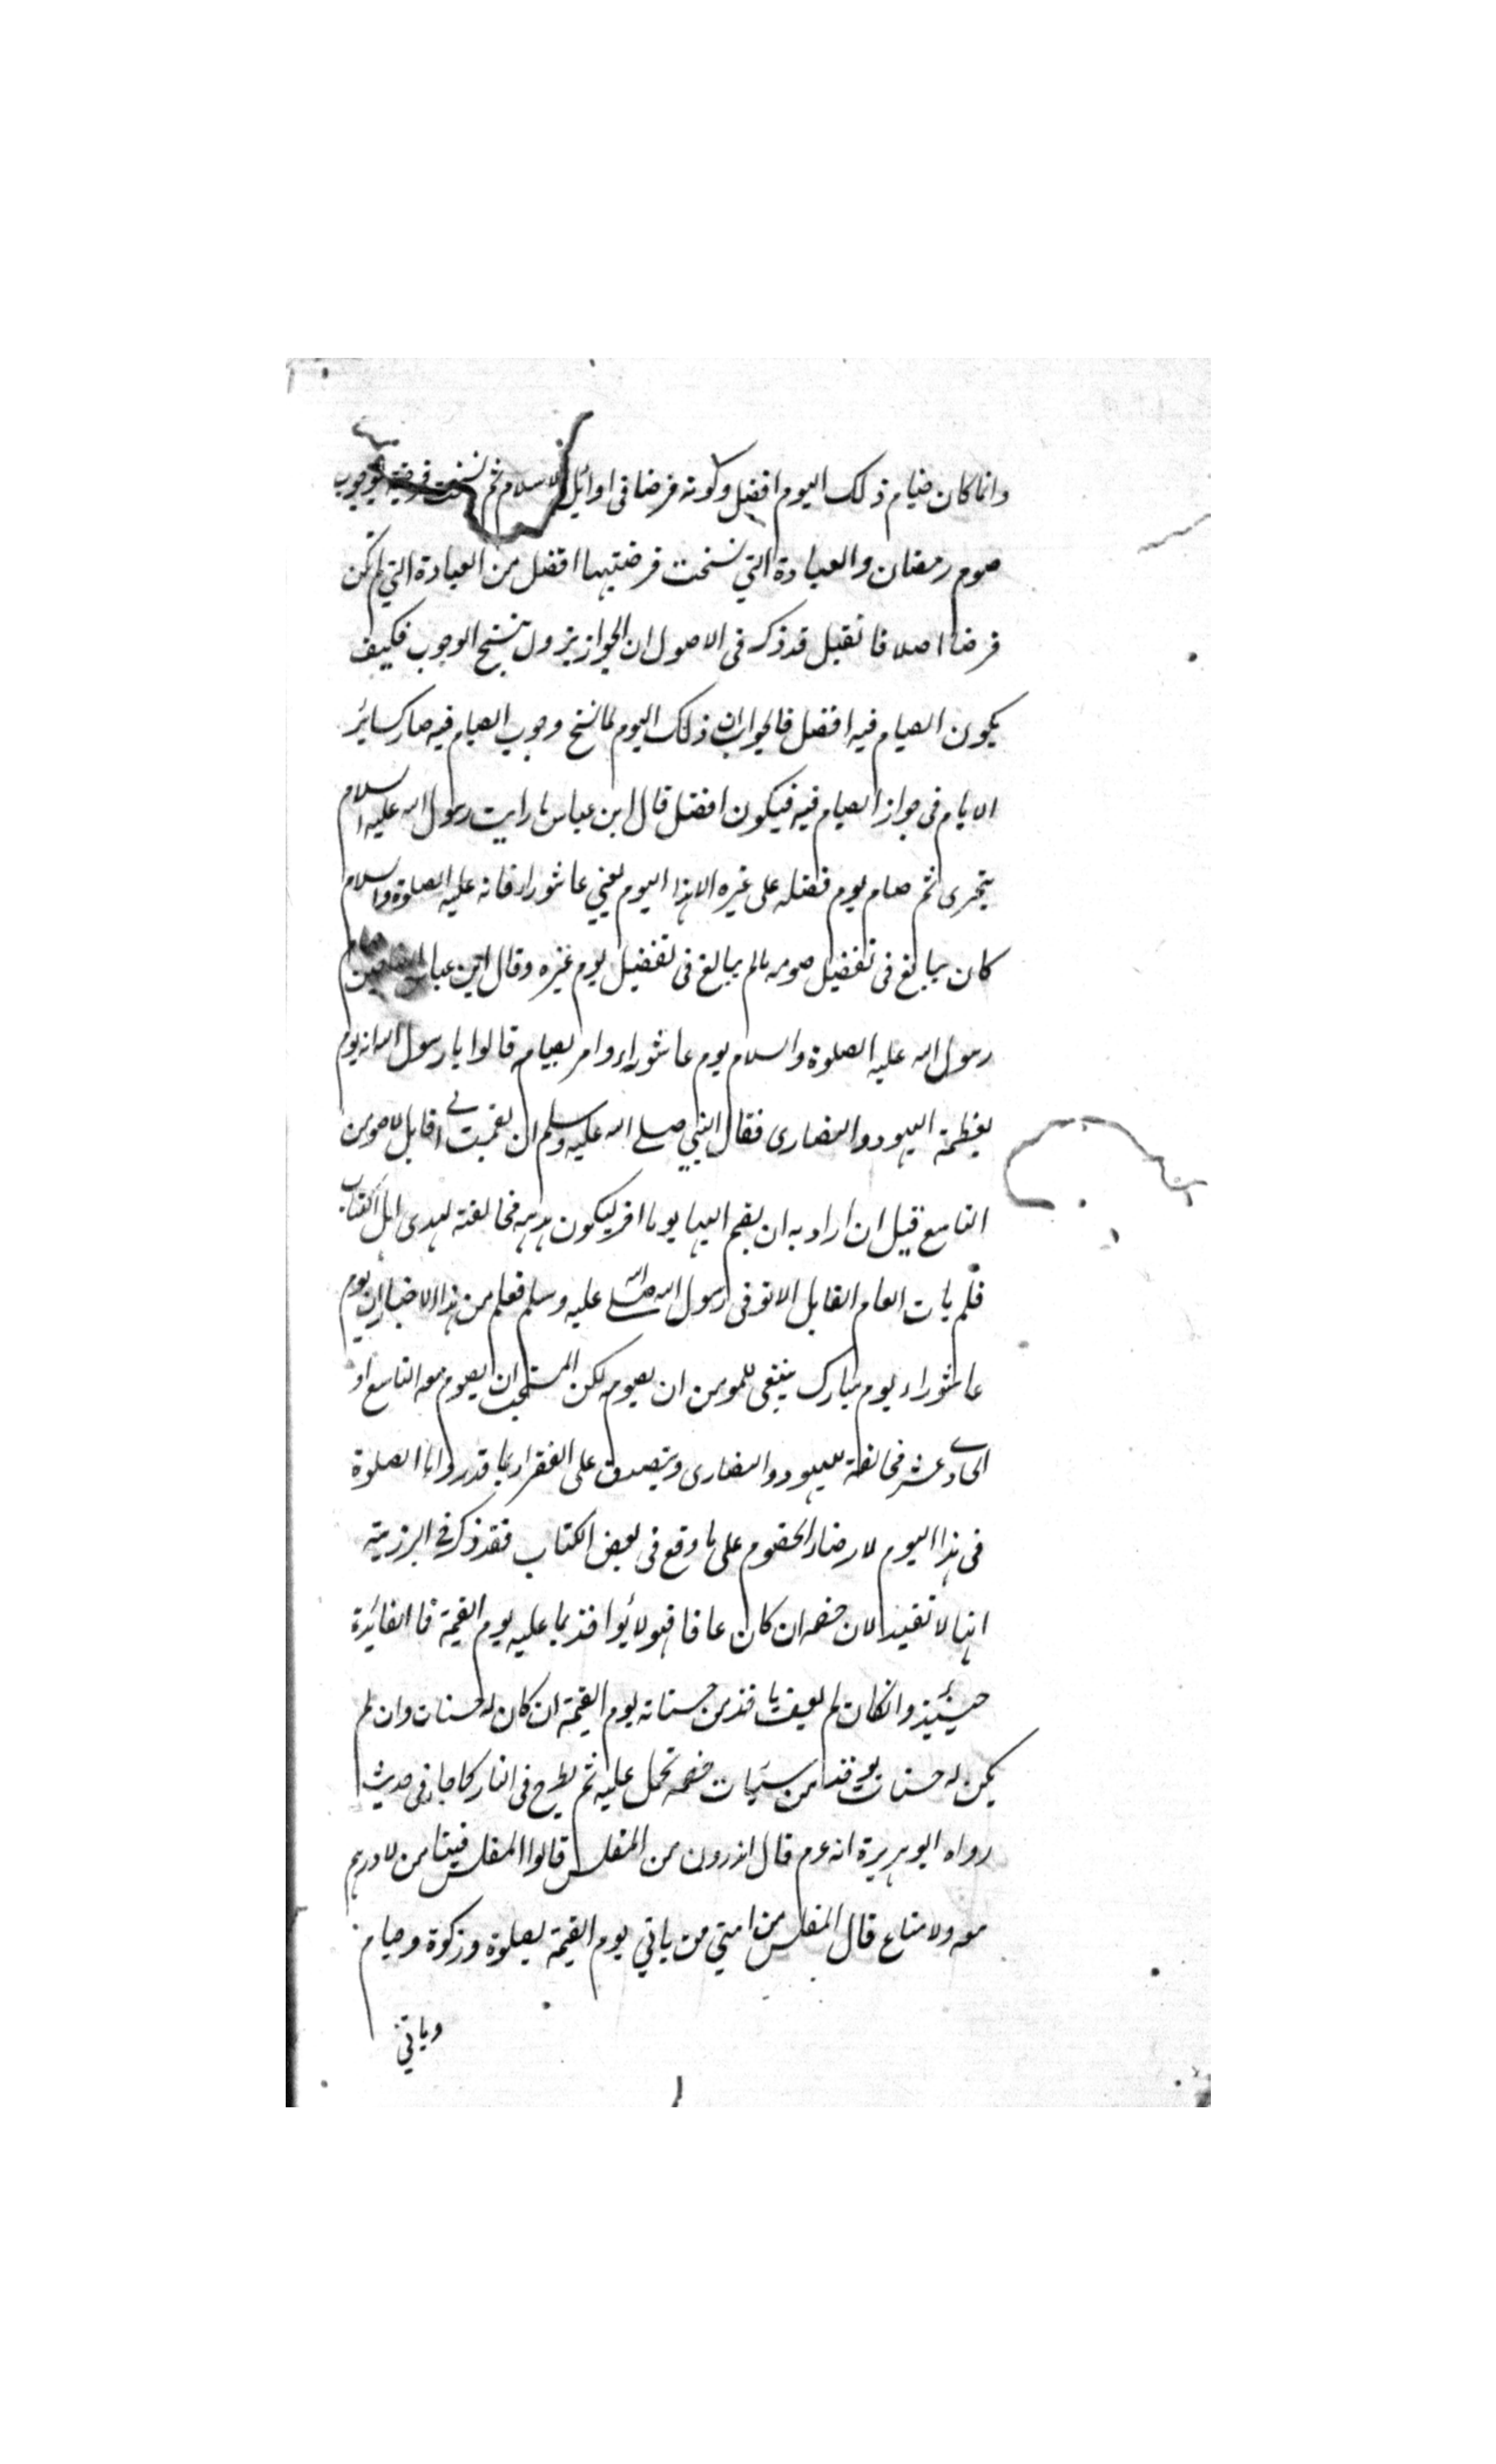 وانما كان صيام ذلك اليوم افضل وكونه فرضا فى اوائل الاسلام ثم نسخت فرضيته بوجوب
صوم رمضان والعبادة التي نسخت فرضيتها افضل من العبادة التي لم تكن
فرضا اصلا فا نقيل قد ذكر فى الاصول ان الجواز يزول بنسخ الوجوب فكيف
يكون الصيام فيه افضل فالجواب ان ذلك اليوم لما نسخ وجوب الصيام فيه صار كسائر
الايام فى جواز الصيام فيه فيكون افضل قال ابن عباس ما رايت رسول الله عليه السلام
يتحرى ثم صام يوم فضله على غيره الا هذا اليوم يعني عاشوراء فانه عليه الصلوة والسلام
كان يبالغ فى تفضيل صومه ما لم يبالغ فى تفضيل يوم غيره وقال ابن عباس حين صام
رسول الله عليه الصلوة والسلام يوم عاشوراء وامر بصيامه قالوا يا رسول الله انه يوم
يعظمة اليهود والنصارى فقال النبي صلى الله عليه وسلم ان بقيت الى قابل لاصومن
التاسع قيل ان اراد به ان يضم اليها يوما اخر ليكون هديه مخالفته لهدى اهل الكتاب
فلم يات العام القابل الا توفى رسول الله صلى الله عليه وسلم فعلم من هذا الاخبار ان يوم
عاشوراء يوم مبارك ينبغى للمومن ان يصومه لكن المستحب ان يصوم معه التاسع او
الحادى عشر مخالفة لليهود والنصارى ويتصدق على الفقراء بما قدر واما الصلوة
فى هذا اليوم لارضاء الخصوم على ما وقع فى بعض الكتاب فقد ذكر فى البزازية
انها لا تفيد لان خصمه ان كان عافا فهو لا يؤاخذ بما عليه يوم القيمة فما الفائدة
حينئيذ وانكان لم يعف ياخذ من حسناته يوم القيمة ان كان له حسنات وان لم
يكن له حسنات يوخذ من سيئات خصمه تحمل عليه ثم يطرح فى النار كما جاء فى حديث
رواه ابو هريرة انه عم قال اتدرون من المفلس قالوا المفلس فينا من لا درهم
معه ولا متاع قال المفلس من امتي من ياتي يوم القيمة بصلوة وزكوة وصيام
وياتي